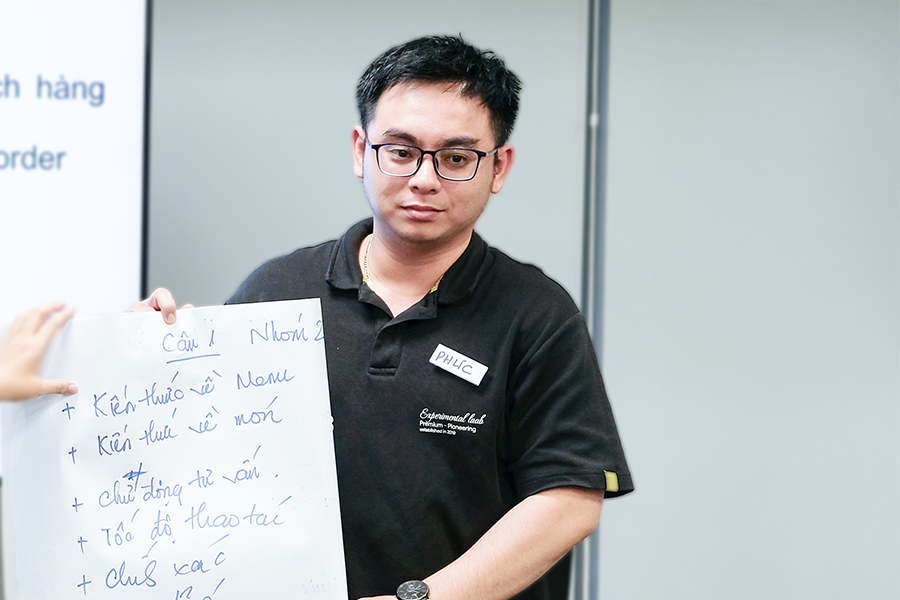 ch hàng
order
Câu 1 Nhóm 2
+ Kiến thức về Menu
+ Kiến thức về món
+ Chủ động tư vấn.
+ Tốc độ thao tác
+ Chính xác
PHÚC
Experimental laab
Premium - Pioneering
established in 2019